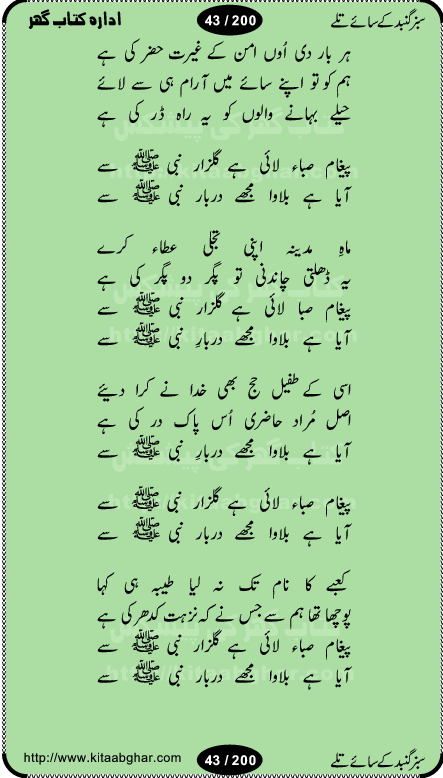 سبز گنبد کے سائے تلے 43 / 200 ادارہ کتاب گھر
ہر بار دی اُوں امن کے غیرت حضر کی ہے
ہم کو تو اپنے سائے میں آرام ہی سے لائے
حیلے بہانے والوں کو یہ راہ ڈر کی ہے
پیغام صباء لائی ہے گلزار نبی ﷺ سے
آیا ہے بلاوا مجھے دربار نبی ﷺ سے
ماہِ مدینہ اپنی تجلی عطاء کرے
یہ ڈھلتی چاندنی تو پگر دو پگر کی ہے
پیغام صبا لائی ہے گلزار نبی ﷺ سے
آیا ہے بلاوا مجھے دربارِ نبی ﷺ سے
اسی کے طفیل حج بھی خدا نے کرا دیئے
اصل مُراد حاضری اُس پاک در کی ہے
آیا ہے بلاوا مجھے دربارِ نبی ﷺ سے
پیغام صباء لائی ہے گلزار نبی ﷺ سے
آیا ہے بلاوا مجھے دربار نبی ﷺ سے
کعبے کا نام تک نہ لیا طیبہ ہی کہا
پوچھا تھا ہم سے جس نے کہ نزہت کدھر کی ہے
پیغام صباء لائی ہے گلزار نبی ﷺ سے
آیا ہے بلاوا مجھے دربار نبی ﷺ سے
سبز گنبد کے سائے تلے 43 / 200 http://www.kitaabghar.com